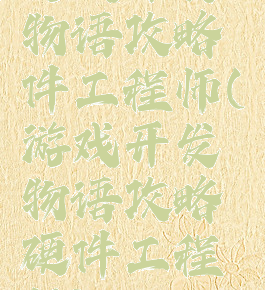 物语攻略
件工程师(
游戏开发
物语攻略
硬件工程